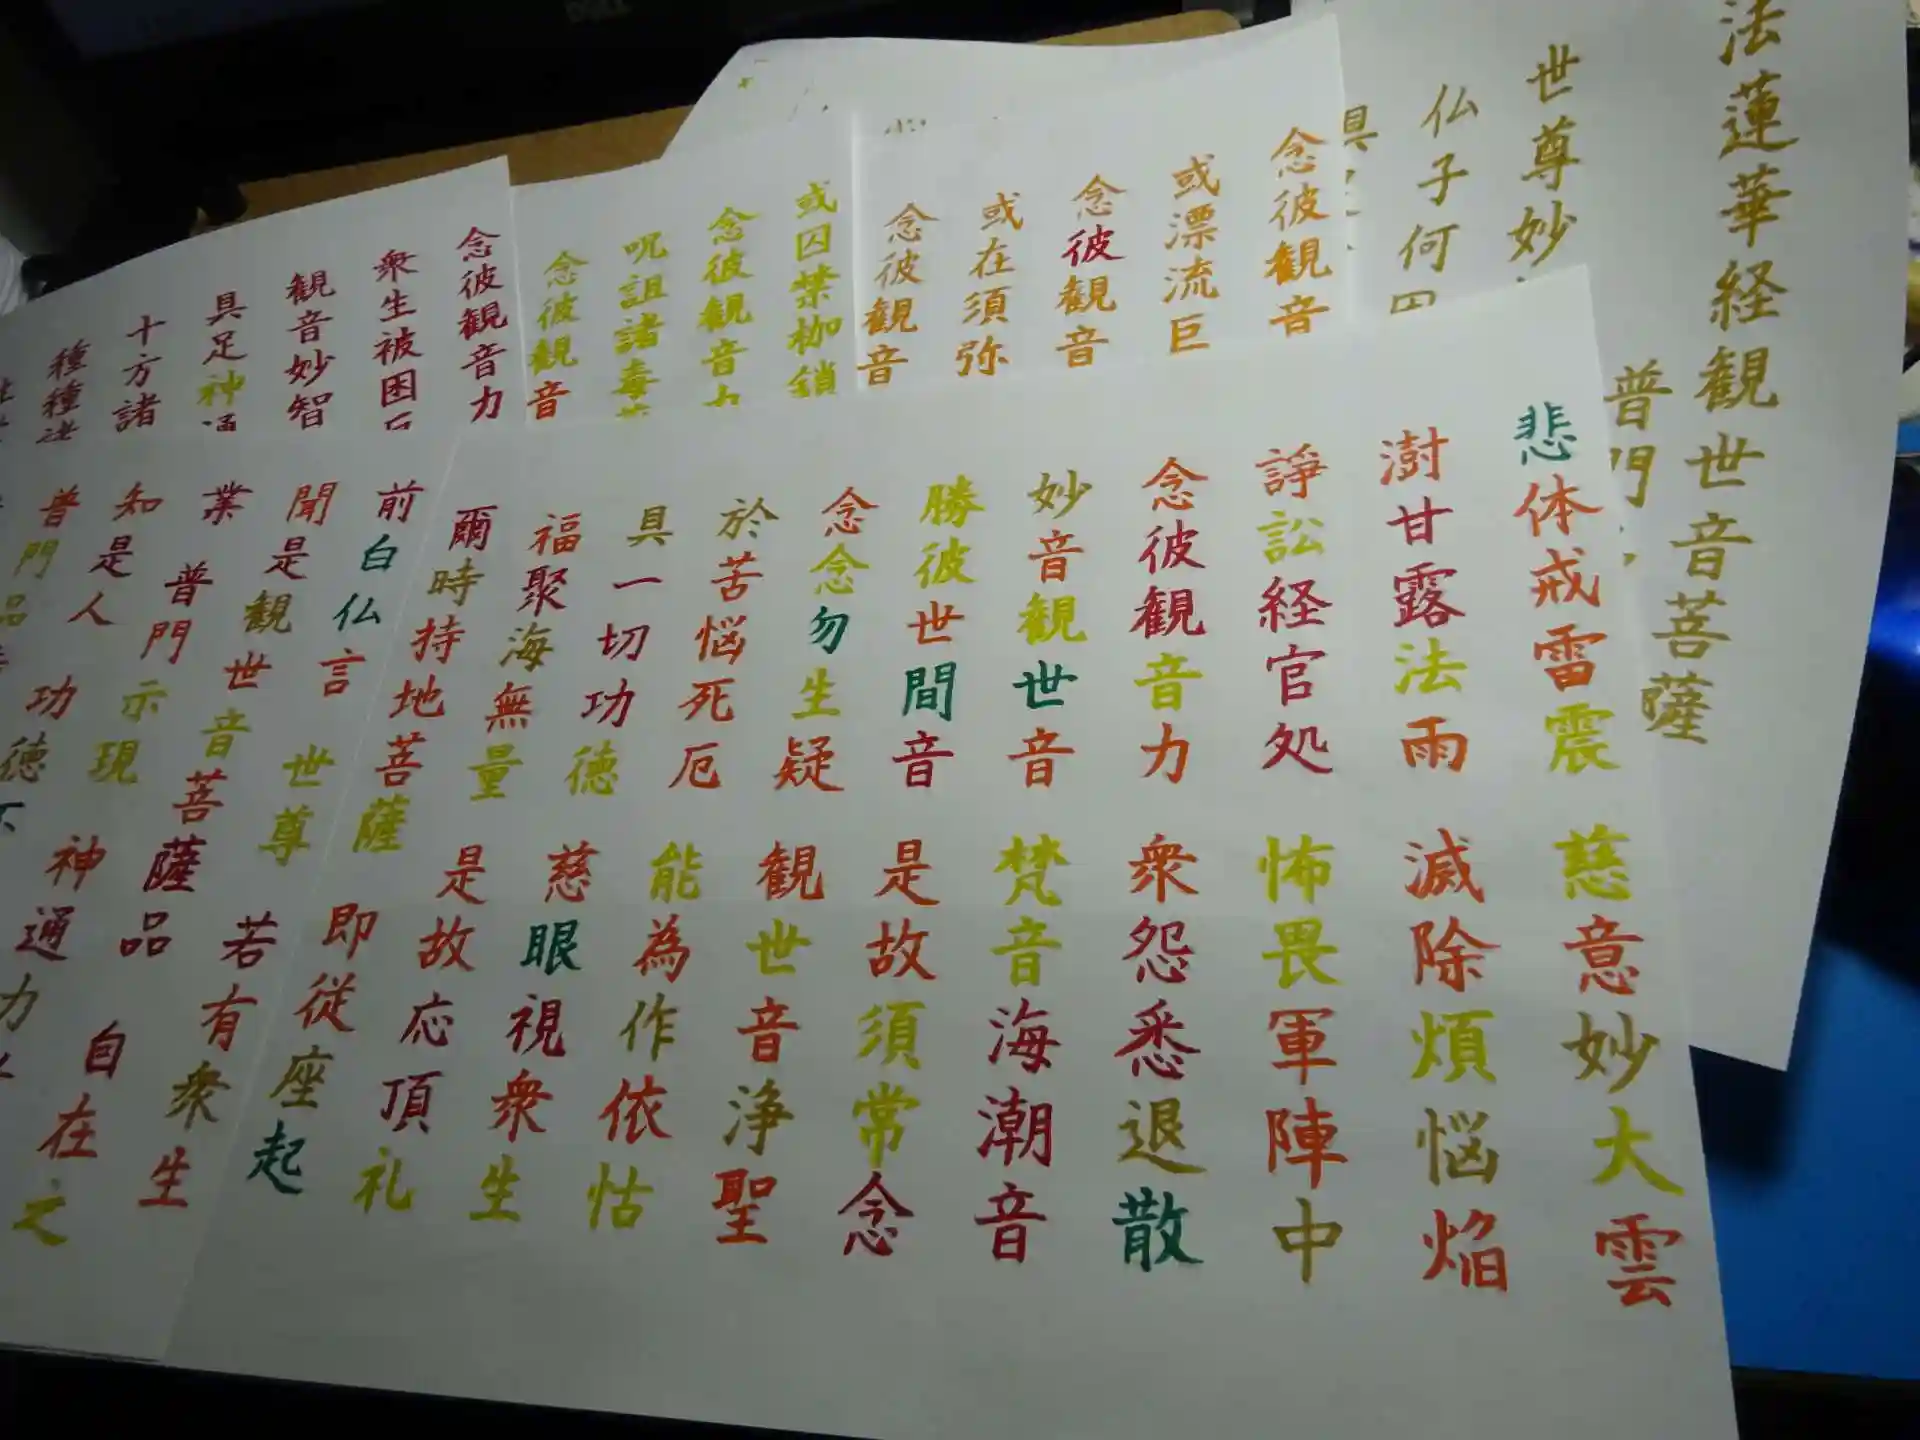 法蓮華経観世音菩薩
普門
世尊妙
仏子何
具
念彼観音
或漂流巨
念彼観音
或在須弥
念彼観音
或囚禁枷鎖
念彼観音力
呪詛諸毒
念彼観音
念彼観音力
衆生被困
観音妙智
具足神通
十方諸
種種
悲体戒雷震 慈意妙大雲
澍甘露法雨 滅除煩悩焔
諍訟経官処 怖畏軍陣中
念彼観音力 衆怨悉退散
妙音観世音 梵音海潮音
勝彼世間音 是故須常念
念念勿生疑 観世音浄聖
於苦悩死厄 能為作依怙
具一切功徳 慈眼視衆生
福聚海無量 是故応頂礼
爾時持地菩薩 即従座起
前白仏言 世尊 若有衆生
聞是観世音菩薩品 自在之
業 普門示現 神通力
知是人 功徳不
普門品
DELL